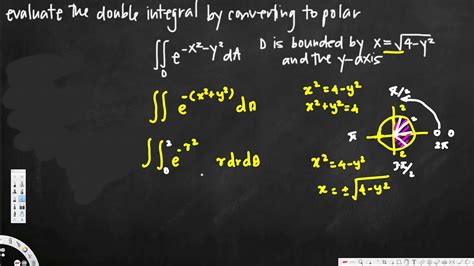 evaluate the double integral by converting to polar
∬_D e^{-x²-y²} dA   D is bounded by x = √(4-y²)
and the y-axis
∬ e^{-(x²+y²)} dA
x² = 4-y²
x²+y² = 4
∫∫_0^2 e^{-r²} r dr dθ
x² = 4-y²
x = ±√(4-y²)
π/2
2
π
2
0
2π
3π/2